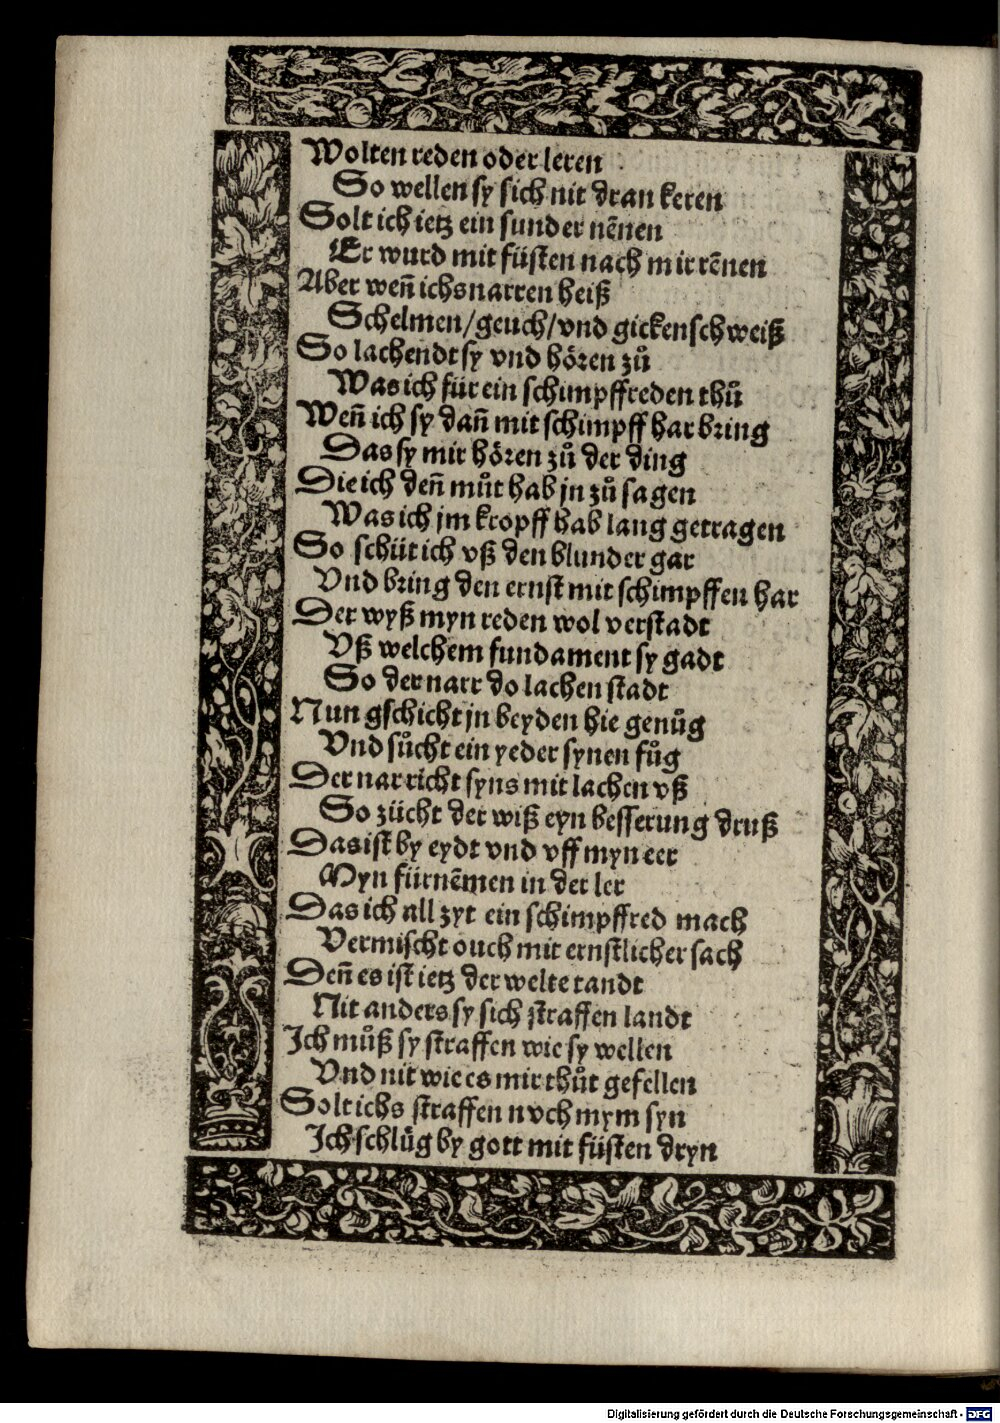 Wolten reden oder leren
So wellen sy sich nit dran keren
Solt ich ietz ein sunder nēnen
Er wurd mit füsten nach mir rēnen
Aber weñ ichs narren heiß
Schelmen/geuch/vnd gickenschweiß
So lachendt sy vnd hören zů
Was ich für ein schimpffreden thů
Weñ ich sy dañ mit schimpff har bring
Das sy mir hören zů der ding
Die ich deñ můt hab jn zů sagen
Was ich jm kropff hab lang getragen
So schüt ich vß den blunder gar
Vnd bring den ernst mit schimpffen har
Der wyß myn reden wol verstadt
Vß welchem fundament sy gadt
So der narr do lachen stadt
Nun gschicht jn beyden hie genůg
Vnd sůcht ein yeder synen fůg
Der nar richt syns mit lachen vß
So zücht der wiß eyn besserung druß
Das ist by eydt vnd vff myn eer
Myn fürnēmen in der ler
Das ich all zyt ein schimpffred mach
Vermischt ouch mit ernstlicher sach
Deñ es ist ietz der welte tandt
Nit anders sy sich straffen landt
Ich můß sy straffen wie sy wellen
Vnd nit wie es mir thůt gefellen
Solt ichs straffen noch mym syn
Ich schlůg by gott mit füsten dryn
Digitalisierung gefördert durch die Deutsche Forschungsgemeinschaft - DFG